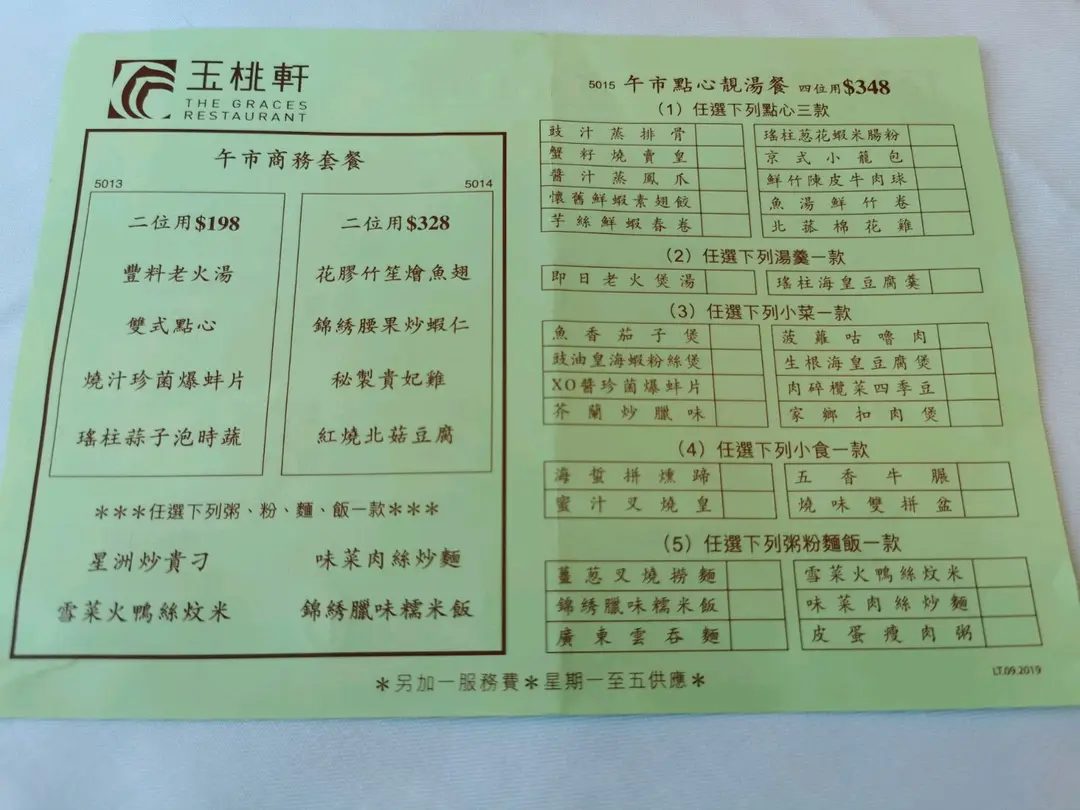 玉桃軒
THE GRACES
RESTAURANT
午市商務套餐
5013
5014
二位用$198
豐料老火湯
雙式點心
燒汁珍菌爆蚌片
瑤柱蒜子泡時蔬
二位用$328
花膠竹笙燴魚翅
錦綉腰果炒蝦仁
秘製貴妃雞
紅燒北菇豆腐
***任選下列粥、粉、麵、飯一款***
星洲炒貴刁
味菜肉絲炒麵
雪菜火鴨絲炆米
錦綉臘味糯米飯
5015 午市點心靚湯餐 四位用$348
(1) 任選下列點心三款
豉汁蒸排骨
瑤柱葱花蝦米腸粉
蟹籽燒賣皇
京式小籠包
醬汁蒸鳳爪
鮮竹陳皮牛肉球
懷舊鮮蝦素翅餃
魚湯鮮竹卷
芋絲鮮蝦春卷
北菇棉花雞
(2) 任選下列湯羹一款
即日老火煲湯
瑤柱海皇豆腐羹
(3) 任選下列小菜一款
魚香茄子煲
菠蘿咕嚕肉
豉油皇海蝦粉絲煲
生根海皇豆腐煲
XO醬珍菌爆蚌片
肉碎欖菜四季豆
芥蘭炒臘味
家鄉扣肉煲
(4) 任選下列小食一款
海蜇拼燻蹄
五香牛𦟌
蜜汁叉燒皇
燒味雙拼盆
(5) 任選下列粥粉麵飯一款
薑葱叉燒撈麵
雪菜火鴨絲炆米
錦綉臘味糯米飯
味菜肉絲炒麵
廣東雲吞麵
皮蛋瘦肉粥
LT.09.2019
*另加一服務費*星期一至五供應*